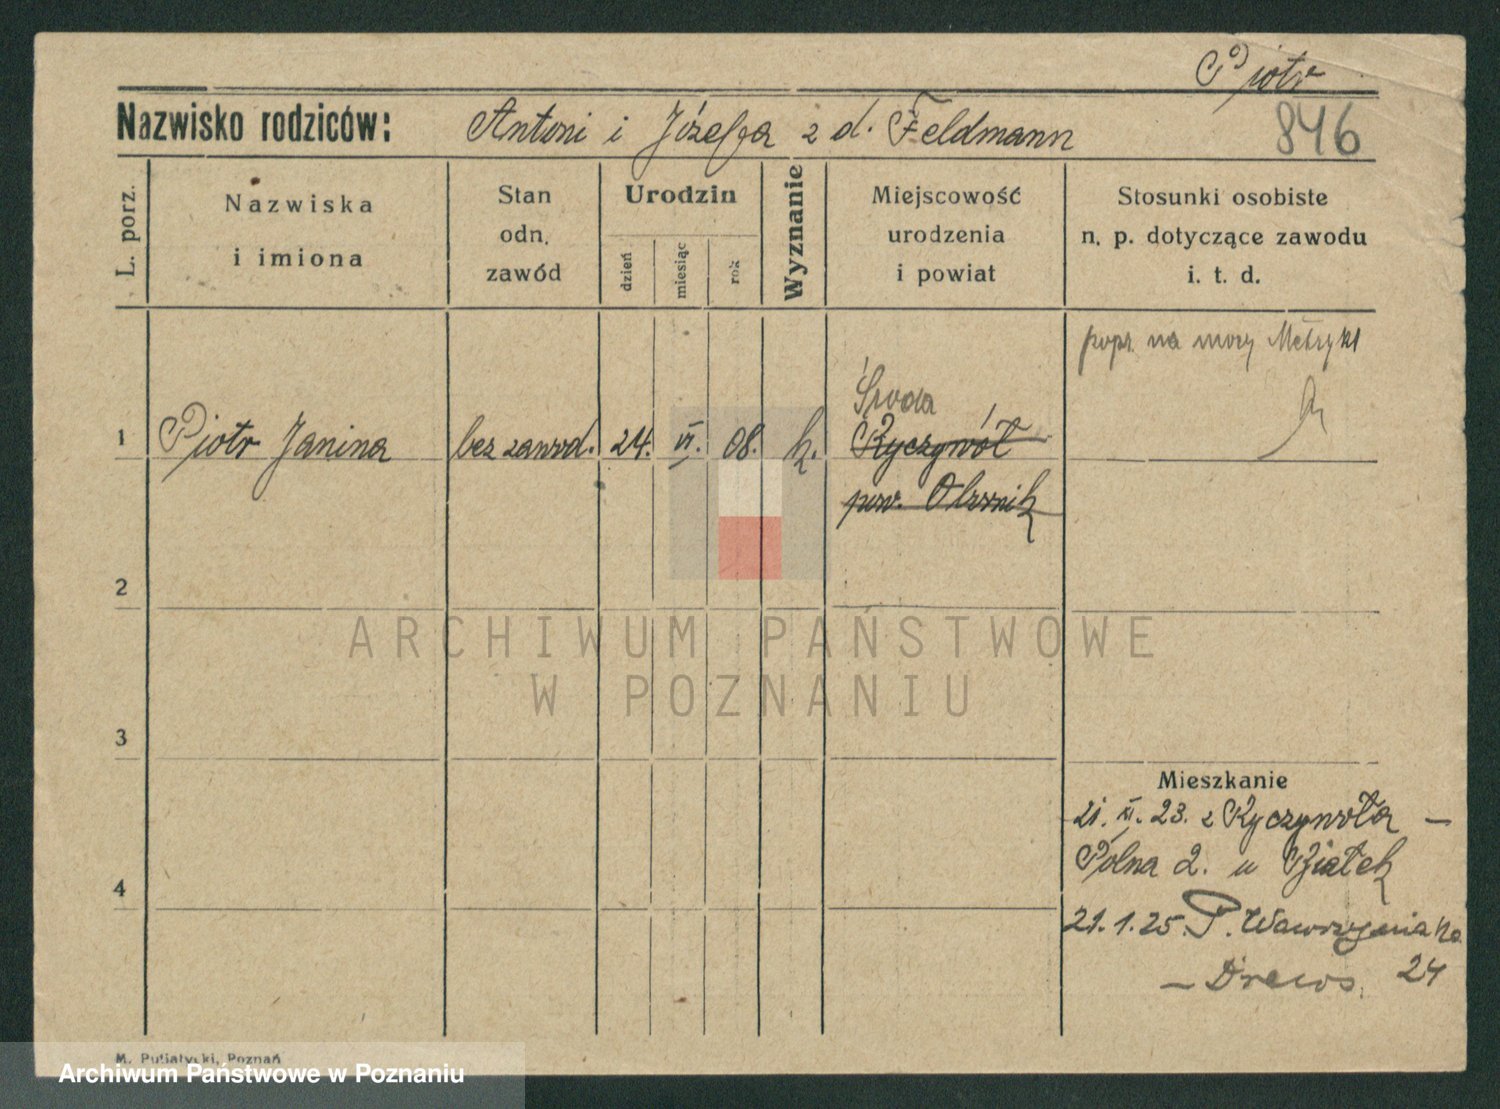 Piotr
Nazwisko rodziców: Antoni i Józefa z d. Feldmann
846
L. porz.
Nazwiska
i imiona
Stan
odn.
zawód
Urodzin
dzień
miesiąc
rok
Wyznanie
Miejscowość
urodzenia
i powiat
Stosunki osobiste
n. p. dotyczące zawodu
i. t. d.
popr. na mocy Metryki
Środa
1 Piotr Janina bez zawod. 24. VI. 08. k. Ryczywół
pow. Obornik
2
ARCHIWUM PAŃSTWOWE
W POZNANIU
3
Mieszkanie
21. XI. 23. z Ryczywoła –
Polna 2. u Białek
4
21.1.25. P. Wawrzyniaka
– Drews. 24
M. Putiatycki, Poznań
Archiwum Państwowe w Poznaniu